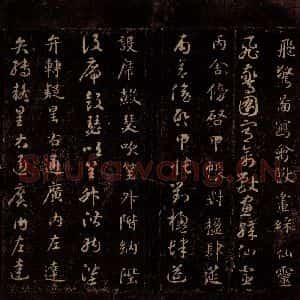 飛驚圖寫禽獸畫綵仙靈
飛驚圖寫禽獸畫綵仙靈
丙舍傍啓甲帳對楹肆筵
丙舍傍啓甲帳對楹肆筵
設席鼓瑟吹笙升階納陛
設席鼓瑟吹笙升階納陛
弁轉疑星右通廣內左達
弁轉疑星右通廣內左達
Shufawang.cn